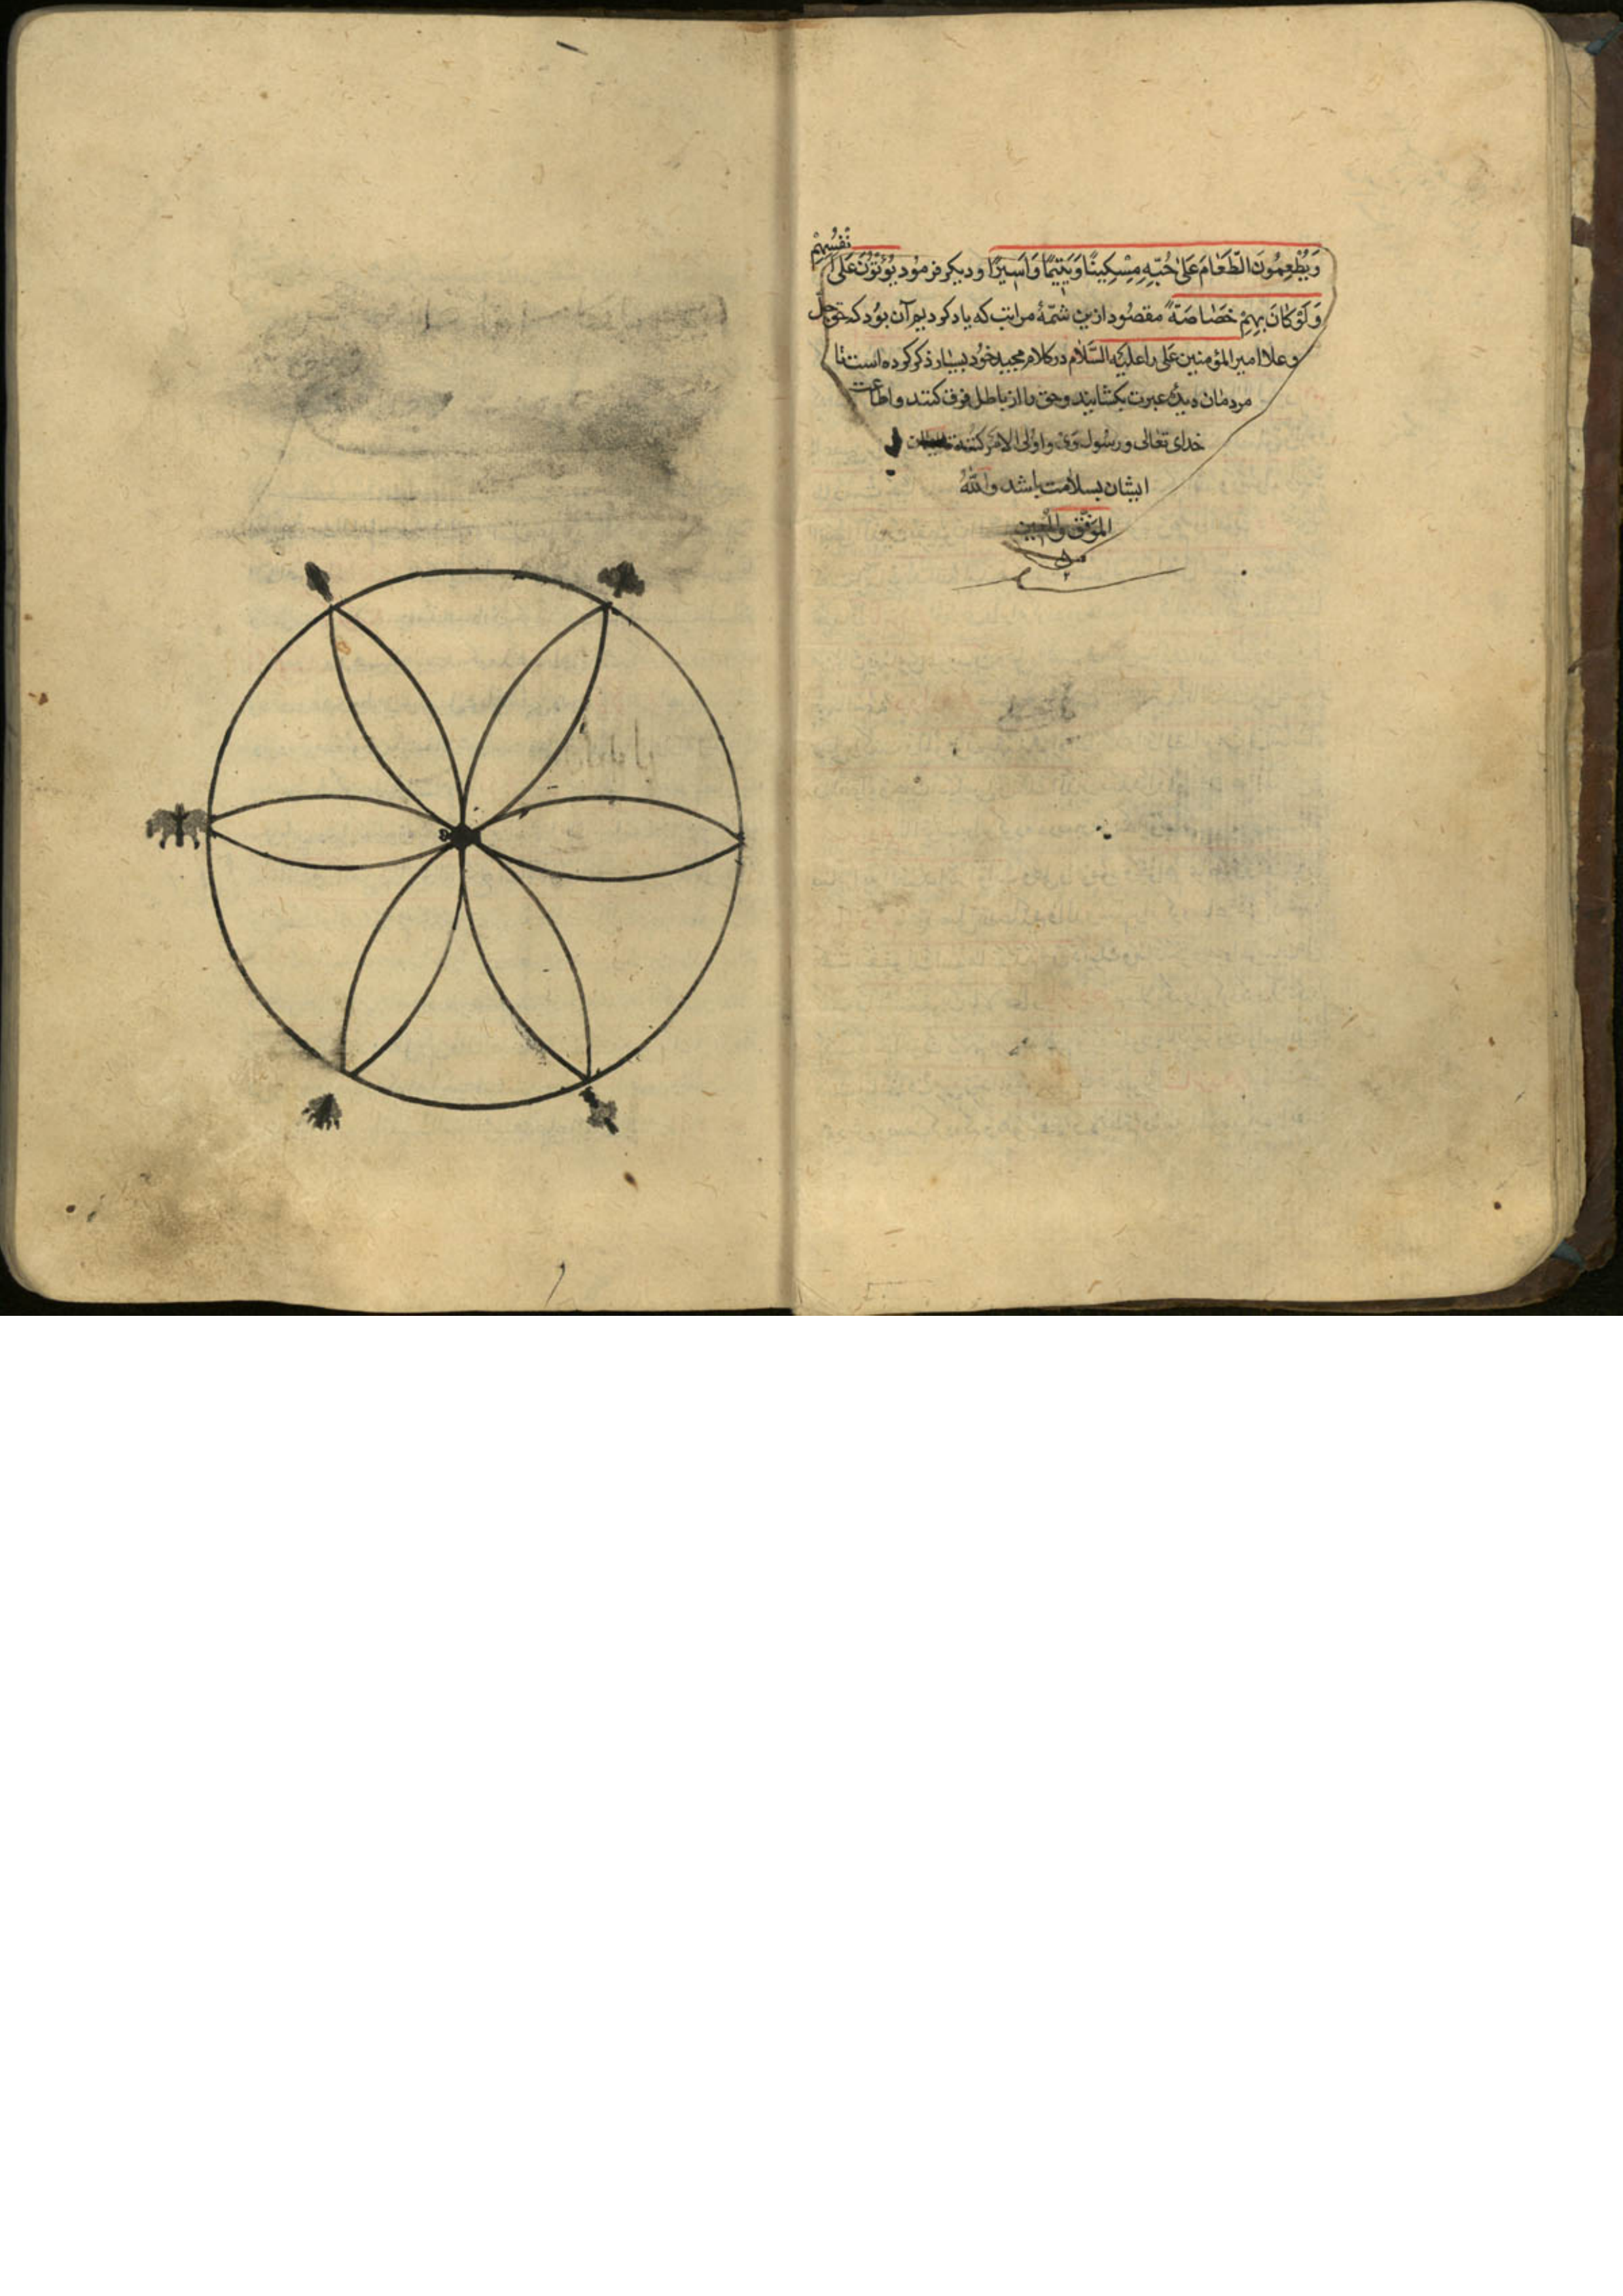 وَيُطْعِمُونَ الطَّعَامَ عَلىٰ حُبِّهِ مِسْكِينًا وَيَتِيمًا وَاَسِيرًا و ديكر فرمود يُؤْثِرُونَ عَلىٰ اَنْفُسِهِمْ
وَلَوْ كَانَ بِهِمْ خَصَاصَةً مقصُود ازين شمّهٔ مراتب كه ياد كرديم آن بوُد كه حق جلّ
و علا امير المؤمنين على را عليه السَّلام در كلام مجيد خوُد بسيار ذكر كرده است تا
مردمان ديدهٔ عبرت بكشايند و حق را از باطل فرق كنند و اطاعت
خداى تعالى و رسُول وَى و اولى الامر كنند
ايشان بسلامت باشد واللهُ
الموَفّق والمُعين